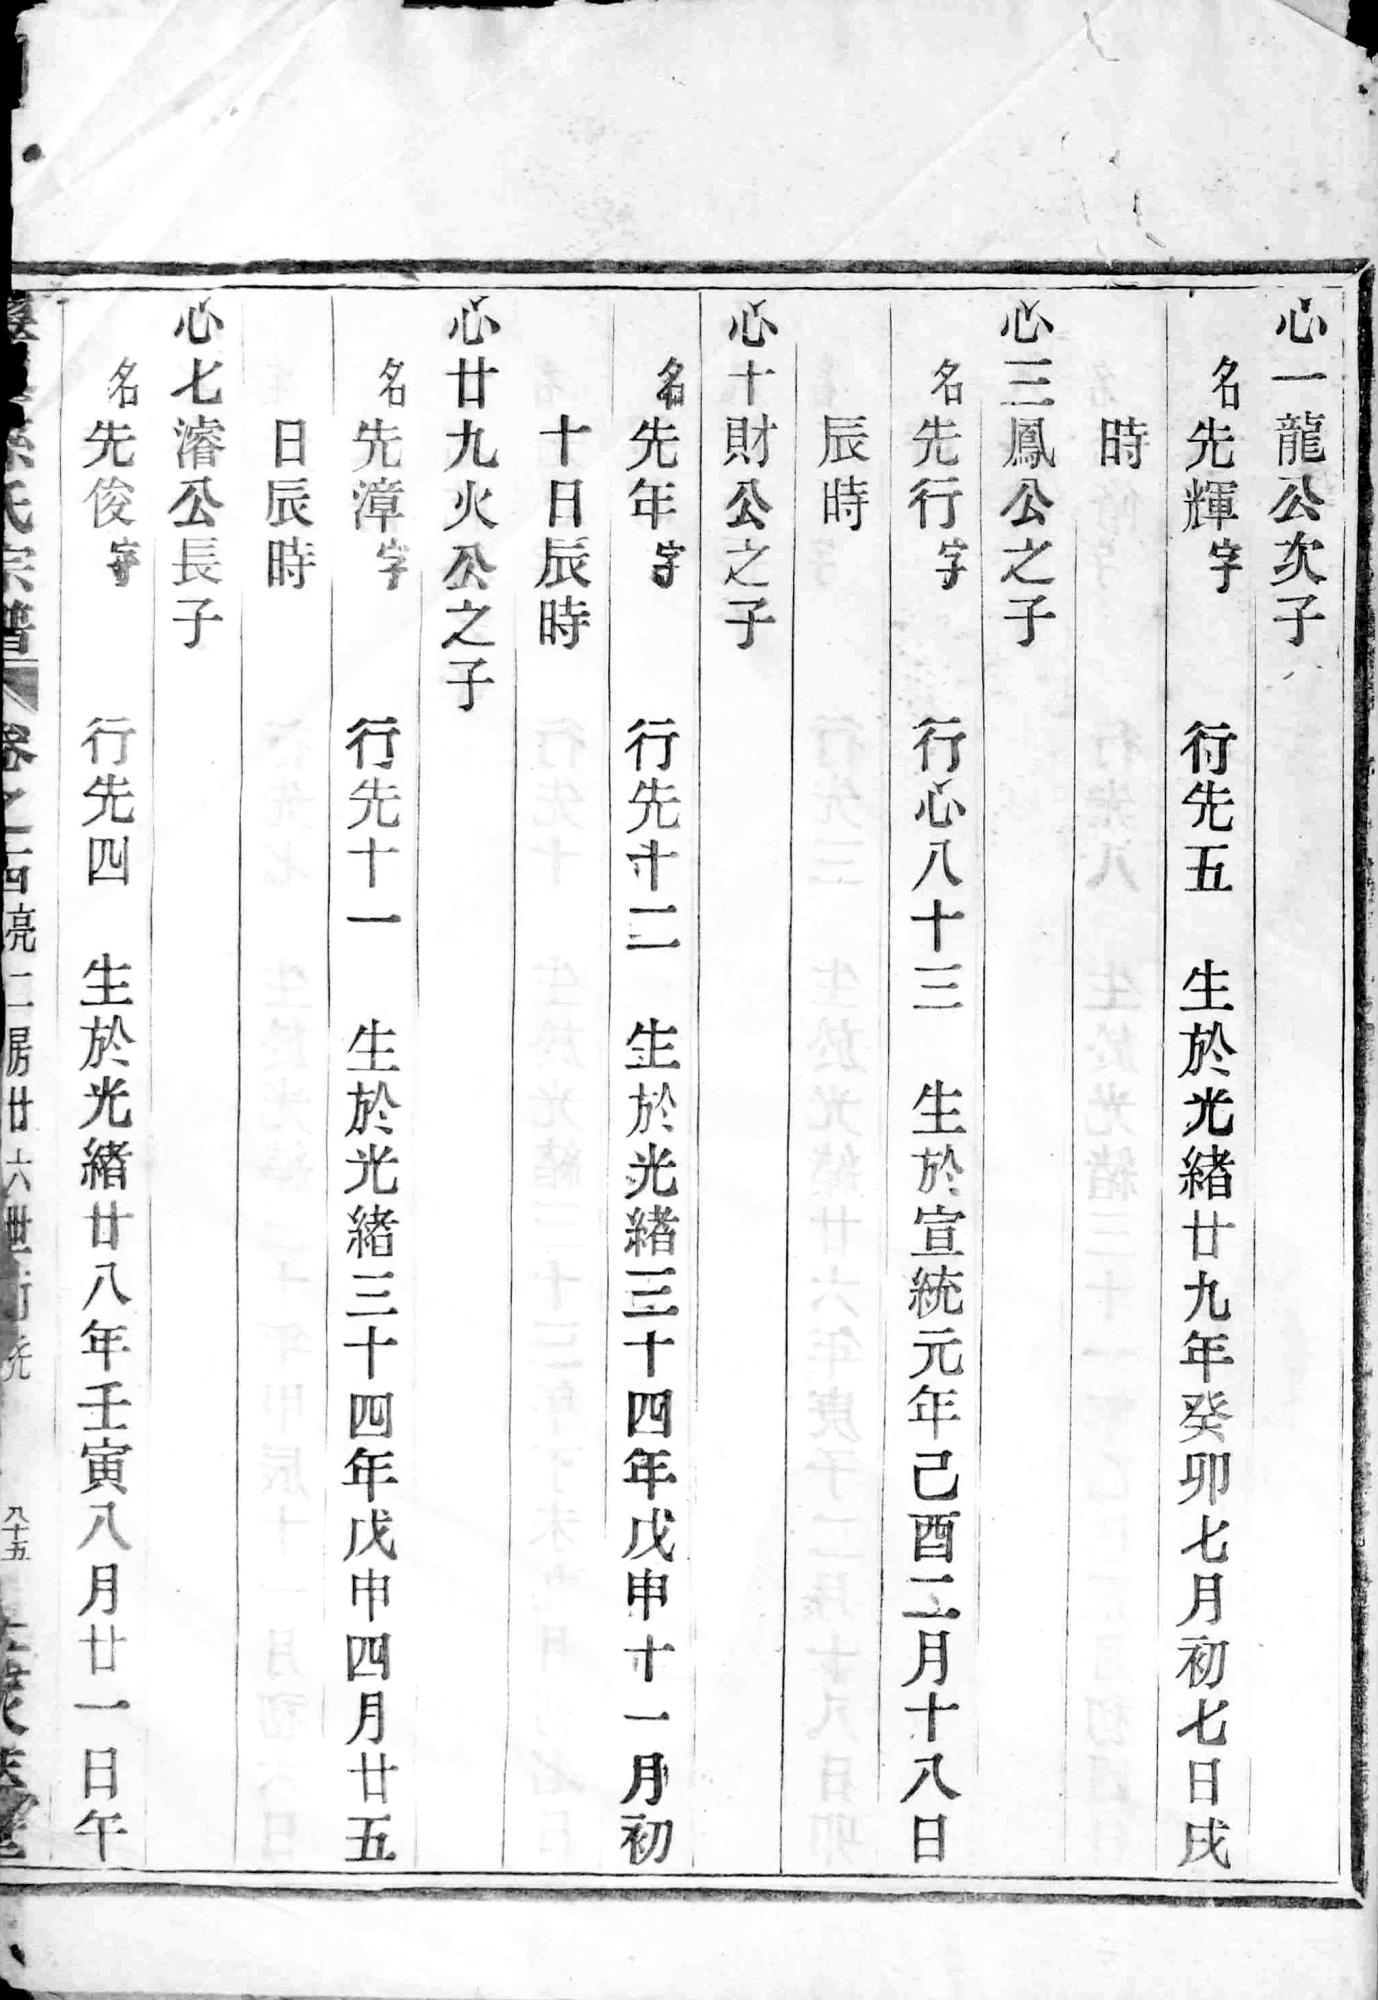 心一龍公次子
名先輝字 行先五 生於光緒廿九年癸卯七月初七日戌
時
心三鳳公之子
名先行字 行心八十三 生於宣統元年己酉二月十八日
辰時
心十財公之子
名先年字 行先十二 生於光緒三十四年戊申十一月初
十日辰時
心廿九火公之子
名先漳字 行先十一 生於光緒三十四年戊申四月廿五
日辰時
心七濬公長子
名先俊字 行先四 生於光緒廿八年壬寅八月廿一日午
氏宗譜 卷之 四亮二房廿六世行先 八十五 堂